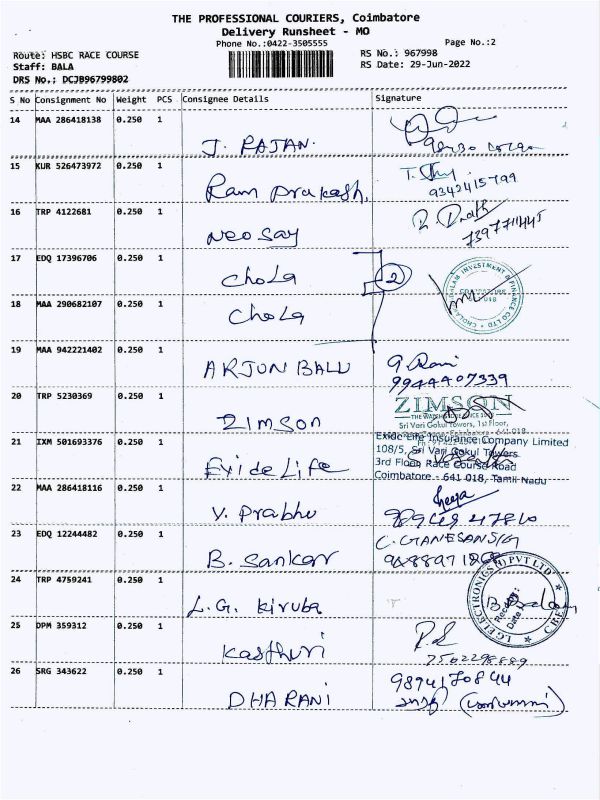 THE PROFESSIONAL COURIERS, Coimbatore
Delivery Runsheet - MO
Phone No.:0422-3505555
Page No.:2
Route: HSBC RACE COURSE
RS No.: 967998
Staff: BALA
RS Date: 29-Jun-2022
DRS No.: DCJB96799802
S No Consignment No Weight PCS Consignee Details Signature
14 MAA 286418138 0.250 1
J. RAJAN.
15 KUR 526473972 0.250 1
Ram prakash,
9342415799
16 TRP 4122681 0.250 1
Neo Say
17 EDQ 17396706 0.250 1
Chola
2
18 MAA 290682107 0.250 1
Chola
19 MAA 942221402 0.250 1
ARJUN BALU
9944407339
20 TRP 5230369 0.250 1
ZIMSON
ZIMSON
Sri Vari Gokul Towers, 1st Floor,
21 IXM 501693376 0.250 1
Exide Life
Exide Life Insurance Company Limited
108/5, Sri Vari Gokul Towers
3rd Floor, Race Course Road
Coimbatore - 641 018, Tamil Nadu
22 MAA 286418116 0.250 1
V. Prabhu
23 EDQ 12244482 0.250 1
B. Sankar
C. GANESAN
24 TRP 4759241 0.250 1
L.G. Kiruba
LG ELECTRONICS (I) PVT LTD
CBE
25 DPM 359312 0.250 1
Kasthuri
7502298889
26 SRG 343622 0.250 1
DHARANI
9894170844